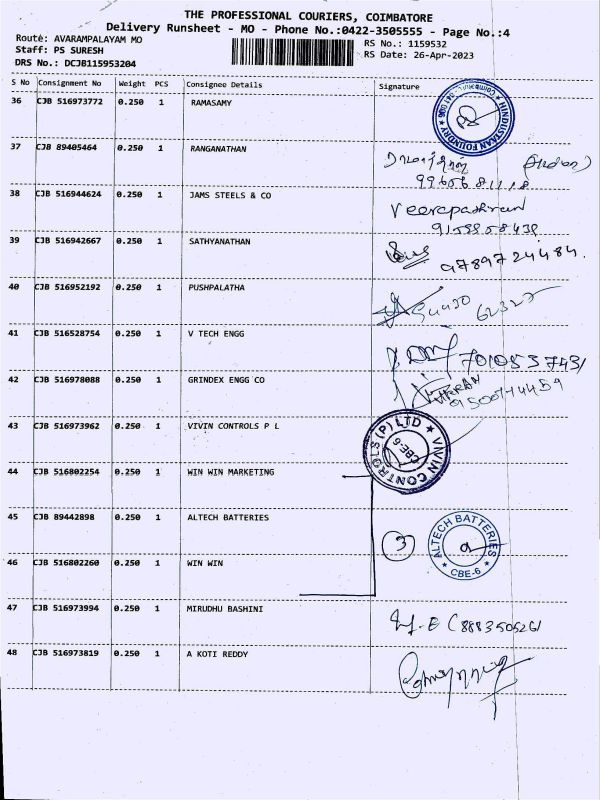 THE PROFESSIONAL COURIERS, COIMBATORE
Delivery Runsheet - MO - Phone No.:0422-3505555 - Page No.:4
Route: AVARAMPALAYAM MO
RS No.: 1159532
Staff: PS SURESH
RS Date: 26-Apr-2023
DRS No.: DCJB115953204
S No Consignment No Weight PCS Consignee Details Signature
36 CJB 516973772 0.250 1 RAMASAMY
HINDUSTAN FOUNDRY
37 CJB 89405464 0.250 1 RANGANATHAN
38 CJB 516944624 0.250 1 JAMS STEELS & CO
39 CJB 516942667 0.250 1 SATHYANATHAN
9789724484.
40 CJB 516952192 0.250 1 PUSHPALATHA
41 CJB 516528754 0.250 1 V TECH ENGG
42 CJB 516978088 0.250 1 GRINDEX ENGG CO
43 CJB 516973962 0.250 1 VIVIN CONTROLS P L
VIVIN CONTROLS (P) LTD
44 CJB 516802254 0.250 1 WIN WIN MARKETING
45 CJB 89442898 0.250 1 ALTECH BATTERIES
3 ALTECH BATTERIES
CBE-6
46 CJB 516802260 0.250 1 WIN WIN
47 CJB 516973994 0.250 1 MIRUDHU BASHINI
48 CJB 516973819 0.250 1 A KOTI REDDY